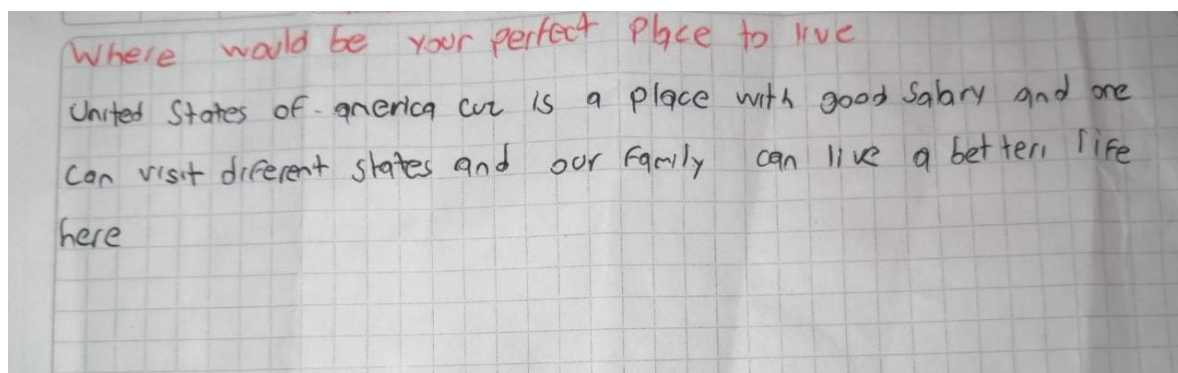 Where would be your perfect Place to live
United States of america cuz is a place with good Salary and one
can visit diferent states and our family can live a better life
here